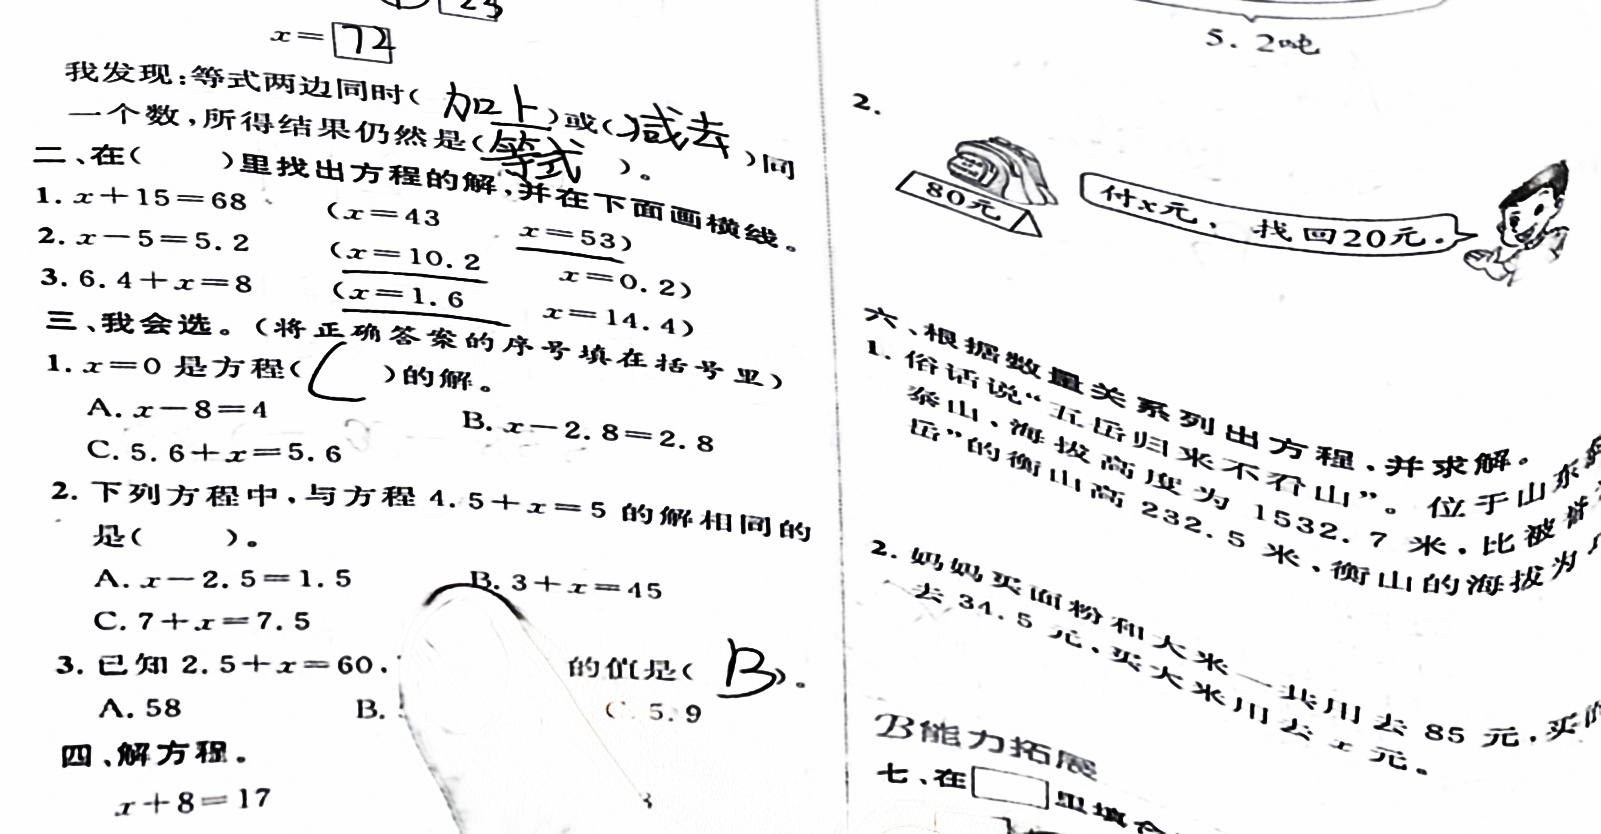 x=72
我发现:等式两边同时(加上)或(减去)同
一个数,所得结果仍然是(等式)。
二、在( )里找出方程的解,并在下面画横线。
1. x+15=68 (x=43 x=53)
2. x-5=5.2 (x=10.2 x=0.2)
3. 6.4+x=8 (x=1.6 x=14.4)
三、我会选。(将正确答案的序号填在括号里)
1. x=0 是方程(C)的解。
A. x-8=4 B. x-2.8=2.8
C. 5.6+x=5.6
2. 下列方程中,与方程 4.5+x=5 的解相同的
是( )。
A. x-2.5=1.5 B. 3+x=45
C. 7+x=7.5
3. 已知 2.5+x=60, 的值是(B)。
A. 58 B. C. 5.9
四、解方程。
x+8=17
5.2吨
2.
80元
付x元,找回20元。
六、根据数量关系列出方程,并求解。
1. 俗话说“五岳归来不看山”。位于山东
泰山,海拔高度为 1532.7 米,比被
岳”的衡山高 232.5 米,衡山的海拔为
2. 妈妈买面粉和大米一共用去 85 元,买
去 34.5 元,买大米用去 x 元。
B能力拓展
七、在 里填